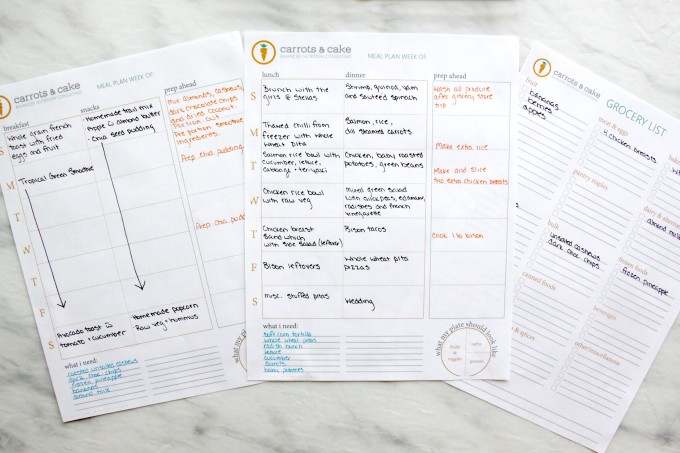 carrots & cake
MEAL PLAN WEEK OF:
breakfast
snacks
prep ahead
S
Whole grain french
toast with fried
eggs and fruit
-Homemade trail mix
-Apple & almond butter
-Chia seed pudding
mix almonds, cashews,
dark chocolate chips
and dried coconut.
Portion out
Pre portion smoothie
ingredients.
Prep chia pudding
M
Tropical Green Smoothie
T
W
Prep chia pudding
T
F
S
Avocado toast w
tomato + cucumber
Homemade popcorn
Raw veg + hummus
what i need:
dark choc chips
frozen pineapple
bananas
almond milk
carrots & cake
BALANCED NUTRITION CONSULTING
MEAL PLAN WEEK OF:
lunch
dinner
prep ahead
S
Brunch with the
girls @ Stellas
Shrimp, quinoa, yam
and sauteed spinach
Wash all produce
after grocery store
trip
M
Thawed chili from
freezer with whole
wheat pita
Salmon, rice,
dill steamed carrots
Make extra rice
T
Salmon rice bowl
with cucumber,
lettuce,
cabbage + teriyaki
Chicken, baby roasted
potatoes, green beans
Make and slice
two extra chicken breasts
W
Chicken rice bowl
with raw veg
Mixed green salad
with chickpeas, edamame,
radishes and french
vinegarette
T
Chicken breast
sandwich
with side salad (leftover)
Bison tacos
Cook 1 lb bison
F
Bison leftovers
Whole wheat pita
pizzas
S
misc. stuffed pitas
Wedding
what i need:
soft corn tortilla
whole wheat pitas
lettuce
cucumber
carrots
baby potatoes
what my plate should look like
veggies
protein
carrots & cake
GROCERY LIST
fruit
bananas
berries
apples
meat & eggs
4 chicken breasts
pantry staples
bulk
unsalted cashews
dark choc chips
dairy &
almond milk
frozen foods
frozen pineapple
canned foods
beverages
& spices
other/miscellaneous